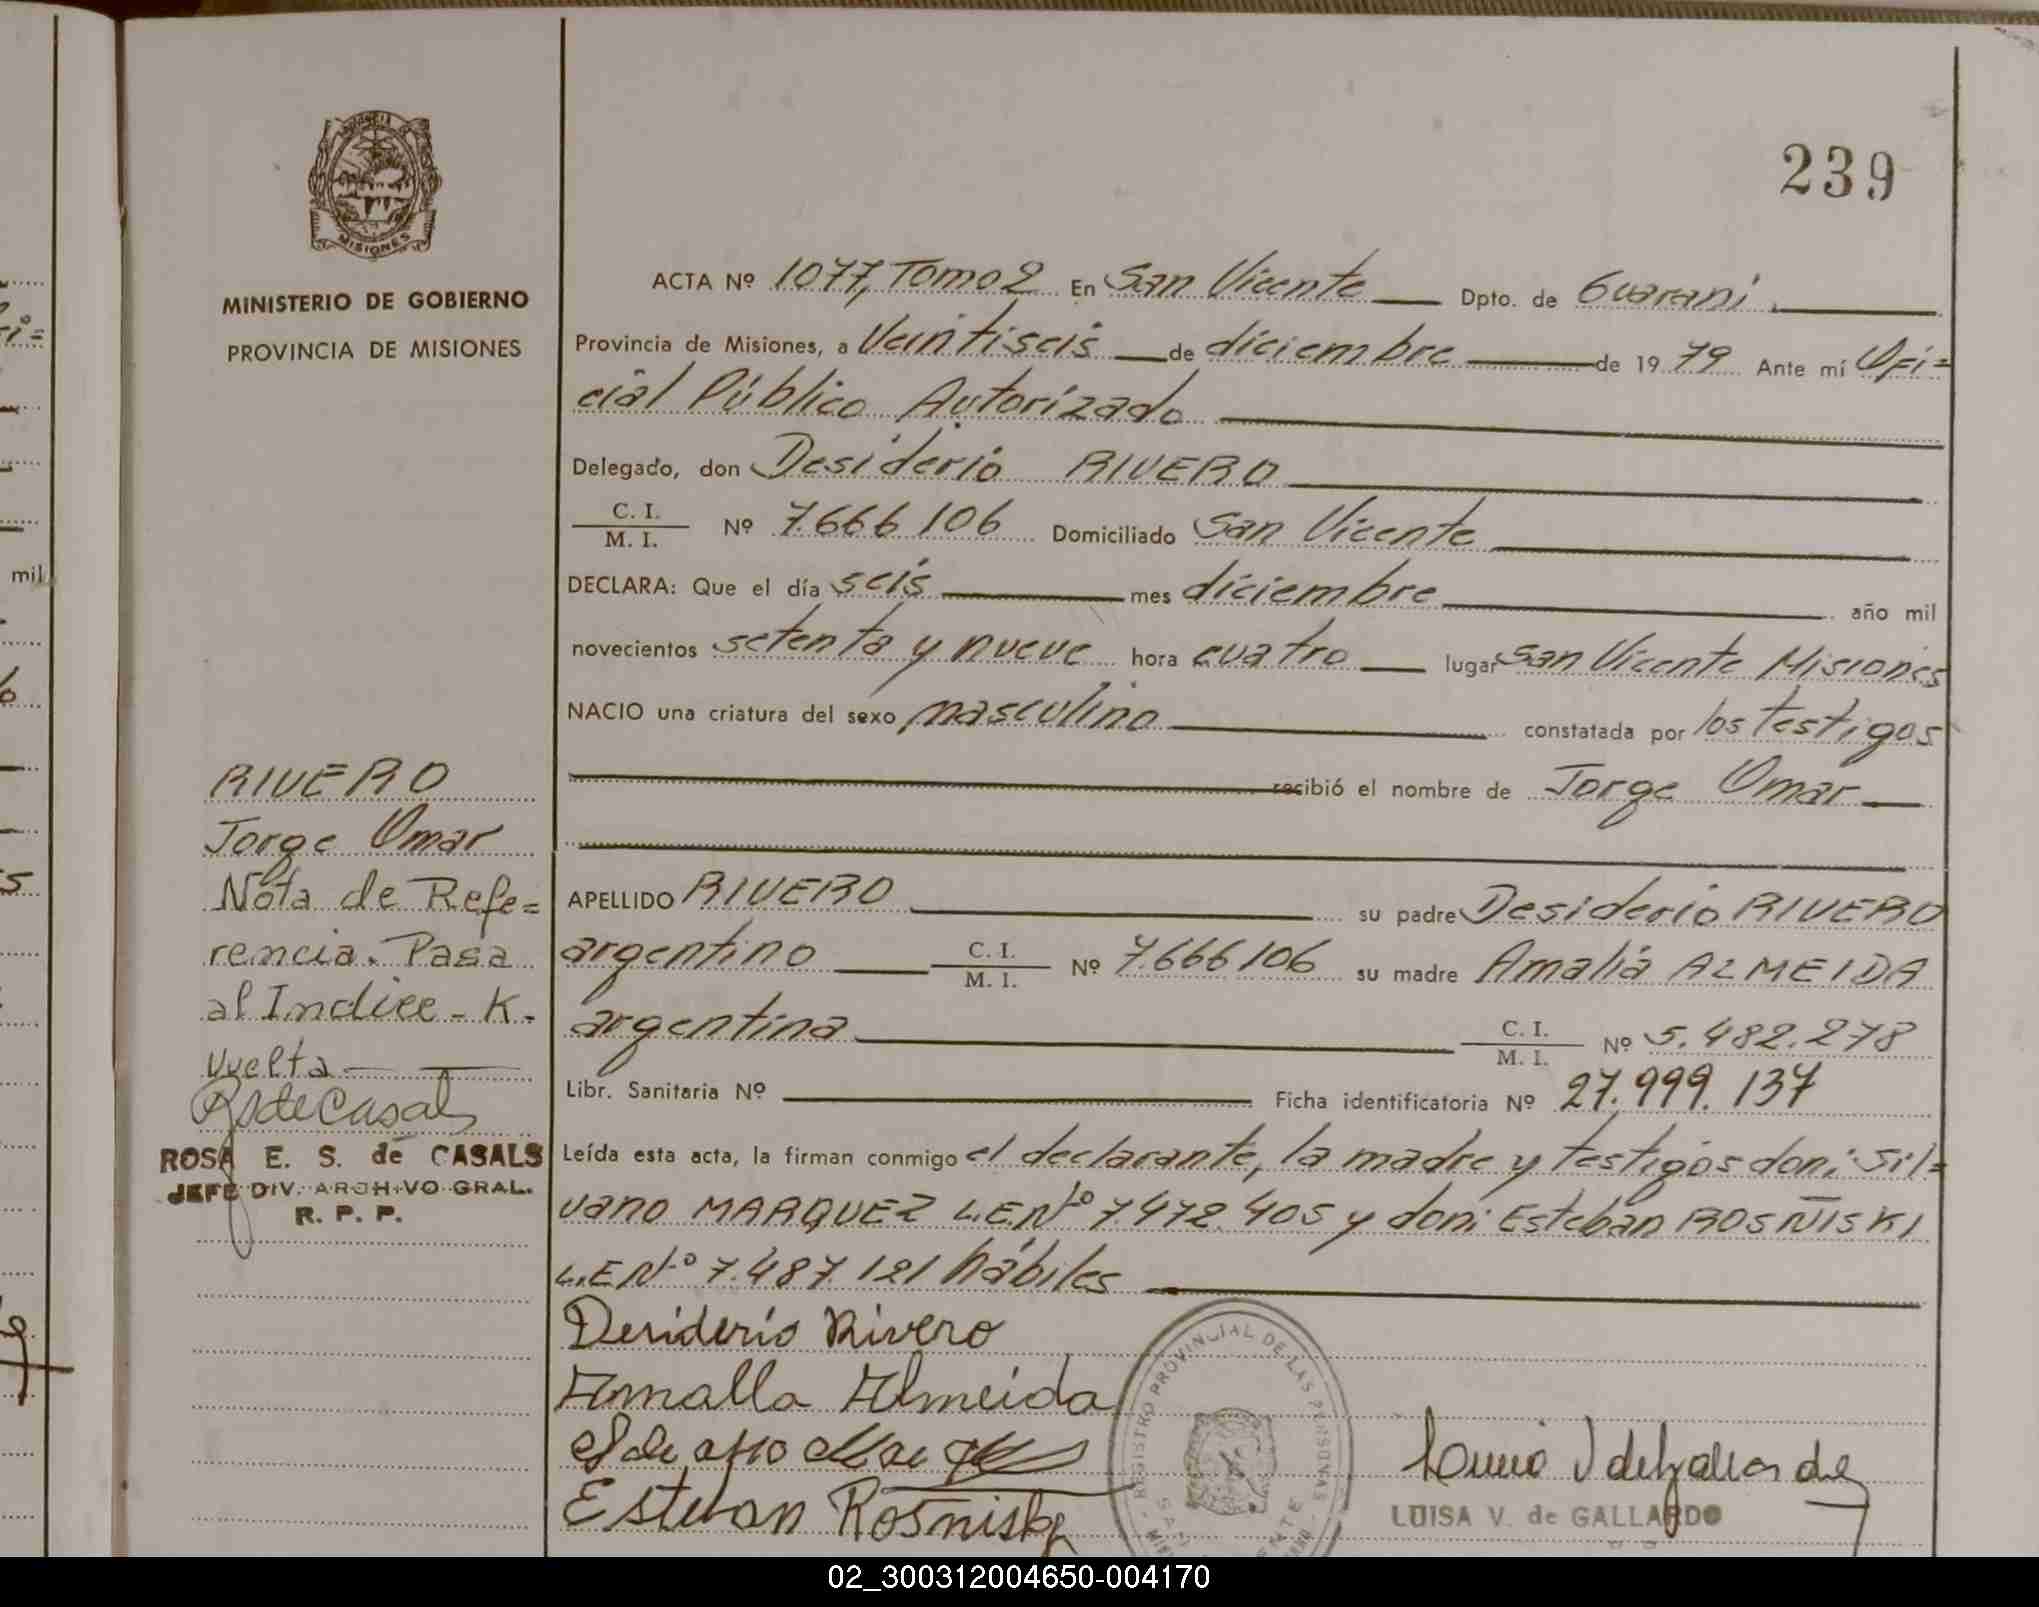 239
MISIONES
MINISTERIO DE GOBIERNO
PROVINCIA DE MISIONES
ACTA Nº 1077, Tomo 2 En San Vicente Dpto. de Guaraní
Provincia de Misiones, a Veintiseis de diciembre de 1979 Ante mí Ofi=
cial Público Autorizado
Delegado, don Desiderio RIVERO
C. I.
M. I. Nº 7.666106 Domiciliado San Vicente
DECLARA: Que el día seis mes diciembre año mil
novecientos setenta y nueve hora cuatro lugar San Vicente Misiones
NACIO una criatura del sexo masculino constatada por los testigos
recibió el nombre de Jorge Omar
APELLIDO RIVERO su padre Desiderio RIVERO
argentino C. I.
M. I. Nº 7.666106 su madre Amalia ALMEIDA
argentina C. I.
M. I. Nº 5.482.278
Libr. Sanitaria Nº Ficha identificatoria Nº 27.999.137
Leída esta acta, la firman conmigo el declarante, la madre y testigos don: Sil=
vano MARQUEZ L.E Nº 7.472.405 y don: Esteban ROSÑISKI
L.E Nº 7.487.121 hábiles
Desiderio Rivero
Amalla Almeida
Estevan Rosniski
RIVERO
Jorge Omar
Nota de Refe=
rencia. Pasa
al Indice - K -
Vuelta
RsdeCasals
ROSA E. S. de CASALS
JEFE DIV. ARCHIVO GRAL.
R. P. P.
REGISTRO PROVINCIAL DE LAS PERSONAS
LUISA V. de GALLARDO
mil
02_300312004650-004170